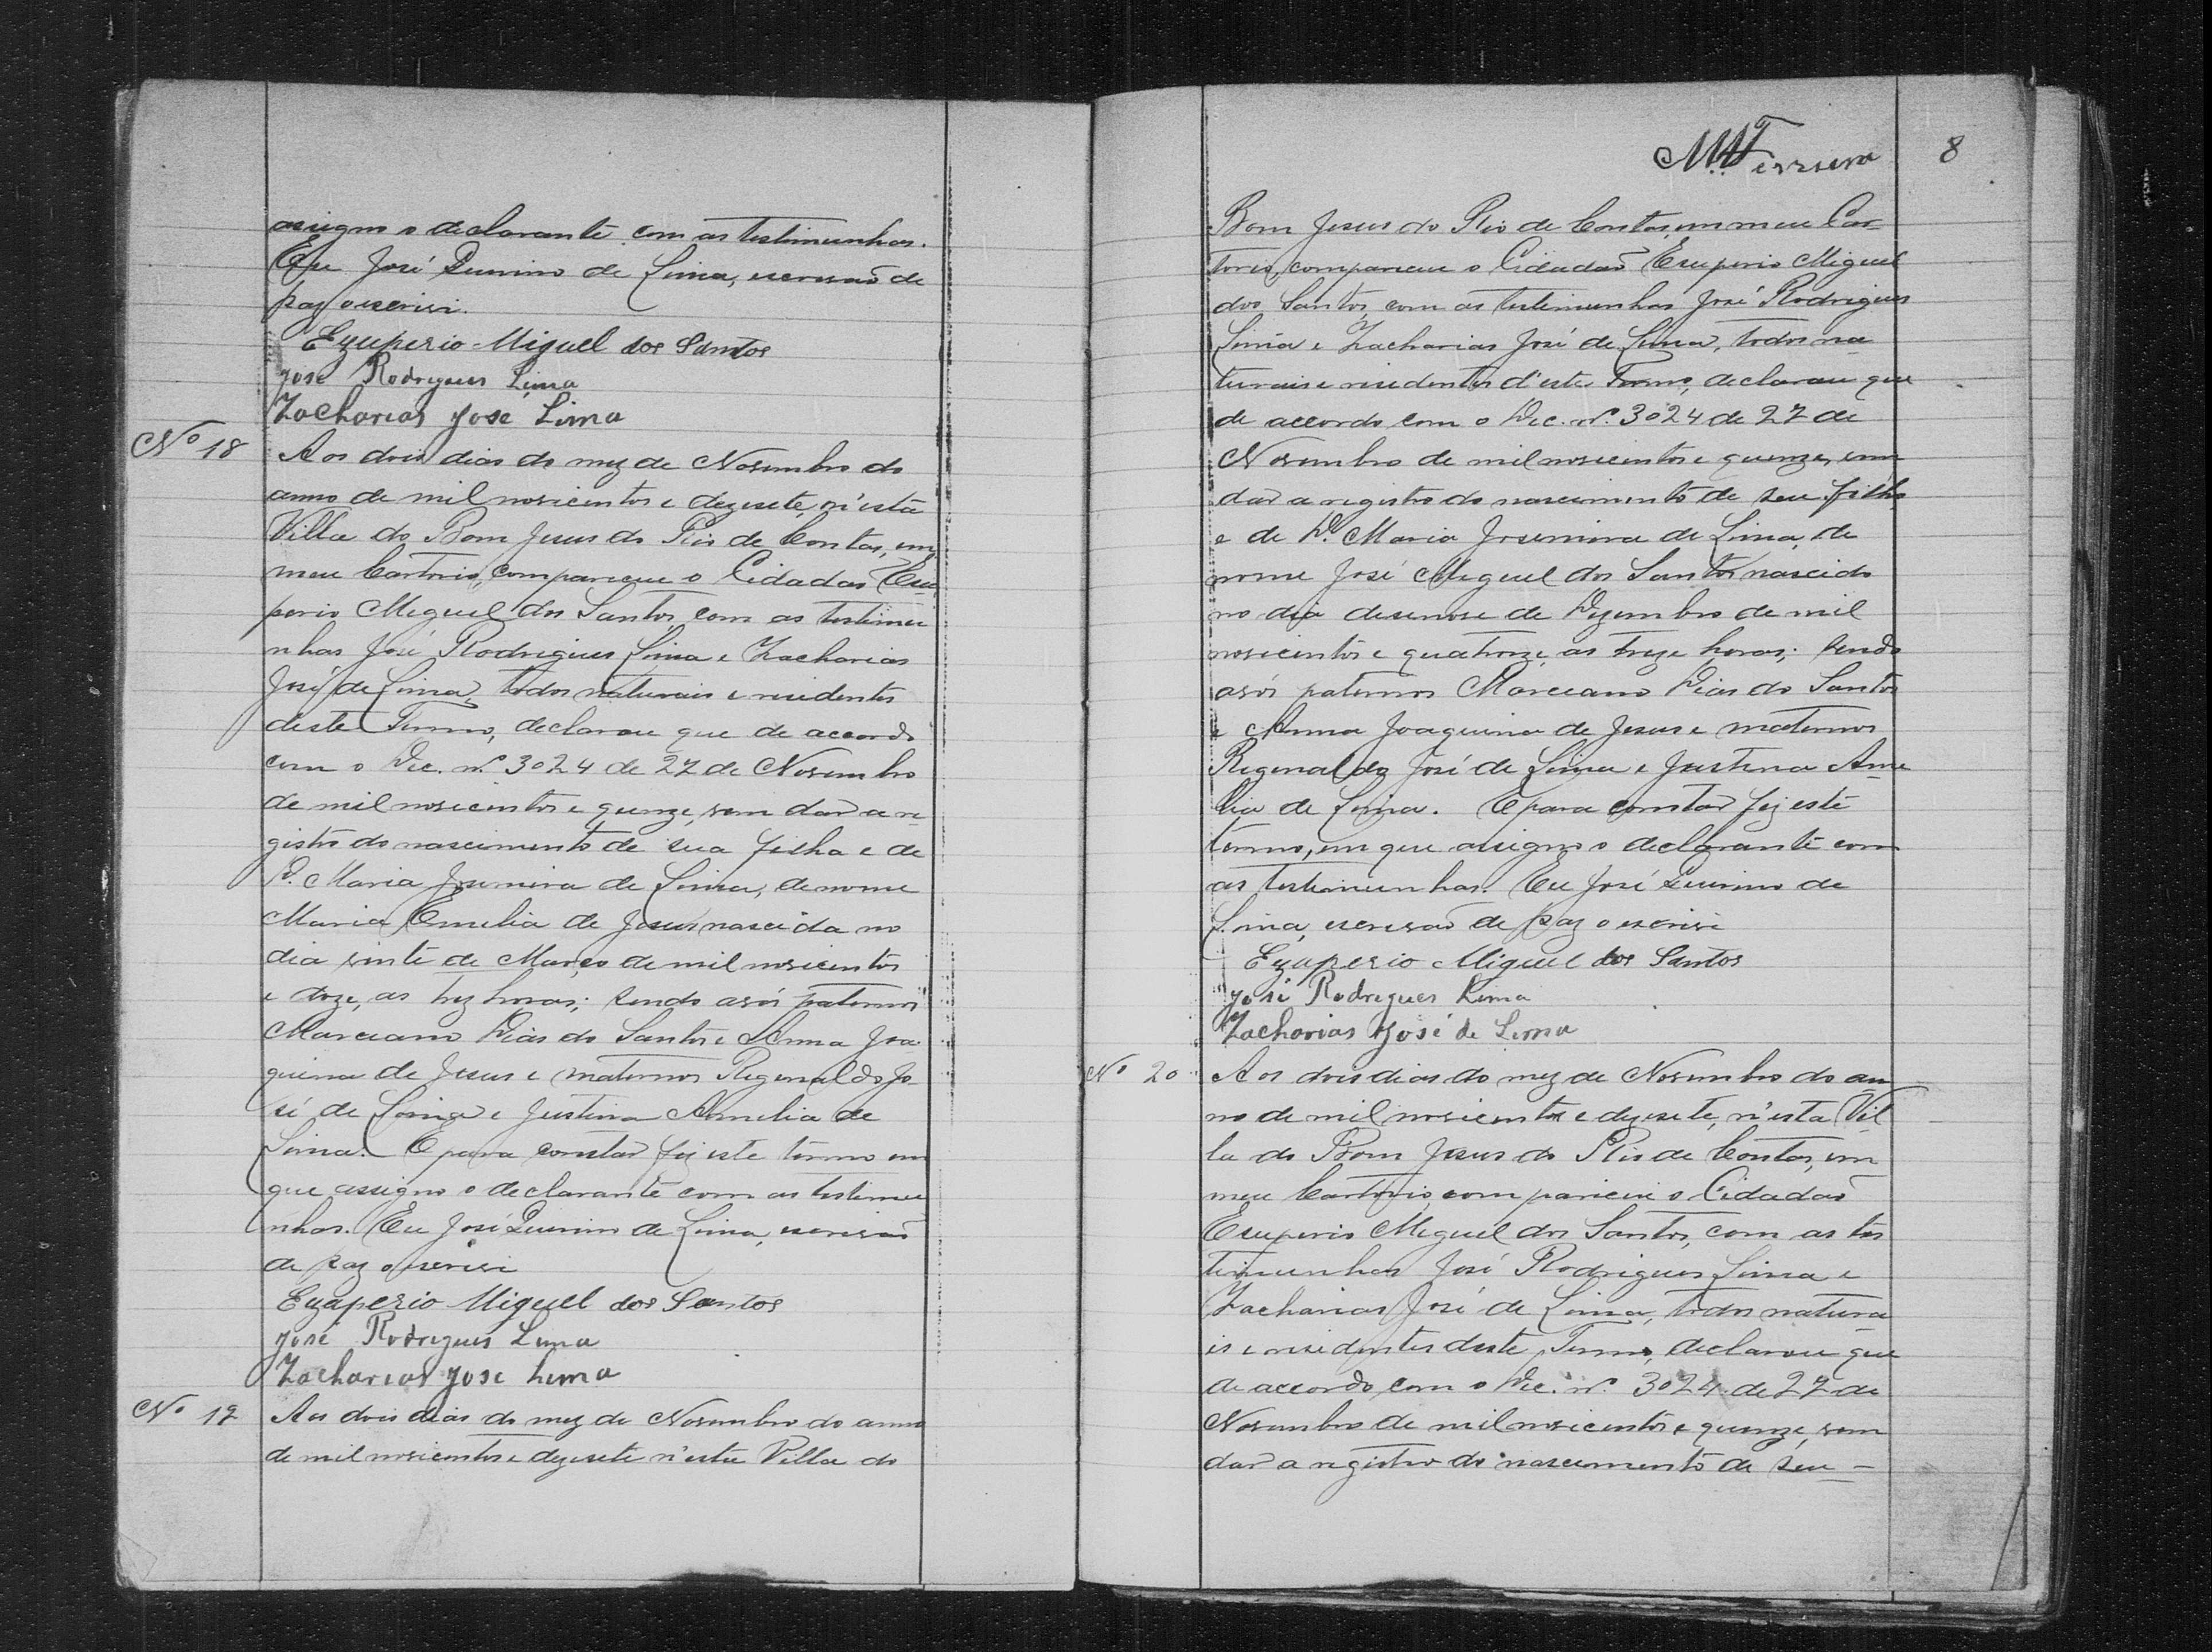 assigno o declarante com as testimunhas.
Eu José Quirino de Lima, escrivaõ de
paz o escrivi.
Exuperio Miguel dos Santos
José Rodrigues Lima
Zacharias José Lima
Nº 18
Aos dois dias do mez de Novembro do
anno de mil novicentos e dezesete, n'esta
Villa do Bom Jesus do Rio de Contas, em
meu Cartorio, compareceu o Cidadaõ Exu
perio Miguel dos Santos, com as testimu
nhas José Rodrigues Lima e Zacharias
José de Lima, todos naturais e residentes
deste Termo, declarou que de accordo
com o Dec. nº 3024 de 27 de Novembro
de mil novicentos e quinze, vem dar a re
gistro do nascimento de sua filha e de
D. Maria Josemira de Lima, de nome
Maria Emilia de Jesus nascida no
dia vinte de Março de mil novicentos
e doze, as trez horas; sendo avós paternos
Marciano Dias do Santos e Anna Joa
quina de Jesus e maternos Reginaldo Jo
sé de Lima e Justina Amelia de
Lima. E para constar fiz este termo em
que assigno o declarante com as testimu
nhas. Eu José Quirino de Lima, escrivaõ
de paz o escrivi
Exuperio Miguel dos Santos
José Rodrigues Lima
Zacharias José Lima
Nº 19
Aos dois dias do mez de Novembro do anno
de mil novicentos e dezesete n'esta Villa do
M.A. Ferreira
8
Bom Jesus do Rio de Contas, em meu Car
torio, compareceu o Cidadaõ Exuperio Miguel
dos Santos, com as testimunhas José Rodrigues
Lima e Zacharias José de Lima, todos na
turais e residentes d'este Termo, declarou que
de accordo com o Dec. nº 3024 de 27 de
Novembro de mil novicentos e quinze, vem
dar a registro do nascimento de seu filho
e de D. Maria Josemira de Lima, de
nome José Miguel dos Santos nascido
no dia desenove de Dezembro de mil
novicentos e quatorze, as treze horas; sendo
avós paternos Marciano Dias do Santos
e Anna Joaquina de Jesus e maternos
Reginaldo José de Lima e Justina Ame
lia de Lima. E para constar fiz este
termo, em que assigno o declarante com
as testimunhas. Eu José Quirino de
Lima, escrivaõ de paz o escrivi
Exuperio Miguel dos Santos
José Rodrigues Lima
Zacharias José de Lima
Nº 20
Aos dois dias do mez de Novembro do an
no de mil novicentos e dezesete, n'esta Vil
la do Bom Jesus do Rio de Contas, em
meu Cartorio, compareceu o Cidadaõ
Exuperio Miguel dos Santos, com as tes
timunhas José Rodrigues Lima e
Zacharias José de Lima, todos natura
is e residentes deste Termo, declarou que
de accordo com o Dec. nº 3024 de 27 de
Novembro de mil novicentos e quinze, vem
dar a registro do nascimento de seu